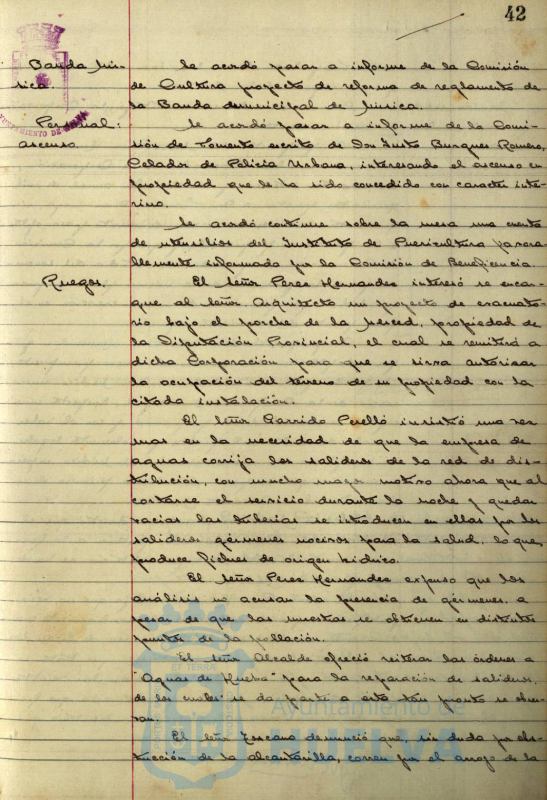 42
Banda Mú-
sica.
Se acordó pasar a informe de la Comisión
de Cultura proyecto de reforma de reglamento de
la Banda Municipal de Música.
Personal:
ascenso.
Se acordó pasar a informe de la Comi-
sión de Fomento escrito de Don Justo Burgues Romero,
Celador de Policía Urbana, interesando el ascenso en
propiedad que le ha sido concedido con caracter inte-
rino.
Se acordó continue sobre la mesa una cuenta
de utensilios del Instituto de Puericultura favora-
blemente informada por la Comisión de Beneficencia.
Ruegos.
El Señor Perez Hernandez interesó se encar-
gue al Señor Arquitecto un proyecto de evacuato-
rio bajo el porche de la Merced, propiedad de
la Diputación Provincial, el cual se remitirá a
dicha Corporación para que se sirva autorisar
la ocupación del terreno de su propiedad con la
citada instalación.
El Señor Garrido Perelló insistió una vez
mas en la necesidad de que la empresa de
aguas corrija los salideros de la red de dis-
tribución, con mucho mayor motivo ahora que al
cortarse el servicio durante la noche y quedar
vacias las tuberias se introducen en ellas por los
salideros gérmenes nocivos para la salud, lo que
produce fiebres de origen hídrico.
El Señor Perez Hernandez expuso que los
análisis no acusan la presencia de gérmenes, a
pesar de que las muestras se obtienen en distintos
puntos de la población.
El Señor Alcalde ofreció reiterar las órdenes a
"Aguas de Huelva" para la reparación de salideros,
de los cuales se da parte a ésta tan pronto se obser-
van.
El Señor Toscano denunció que, sin duda por obs-
trucción de la alcantarilla, corren por el arroyo de la
Ayuntamiento de
HUELVA